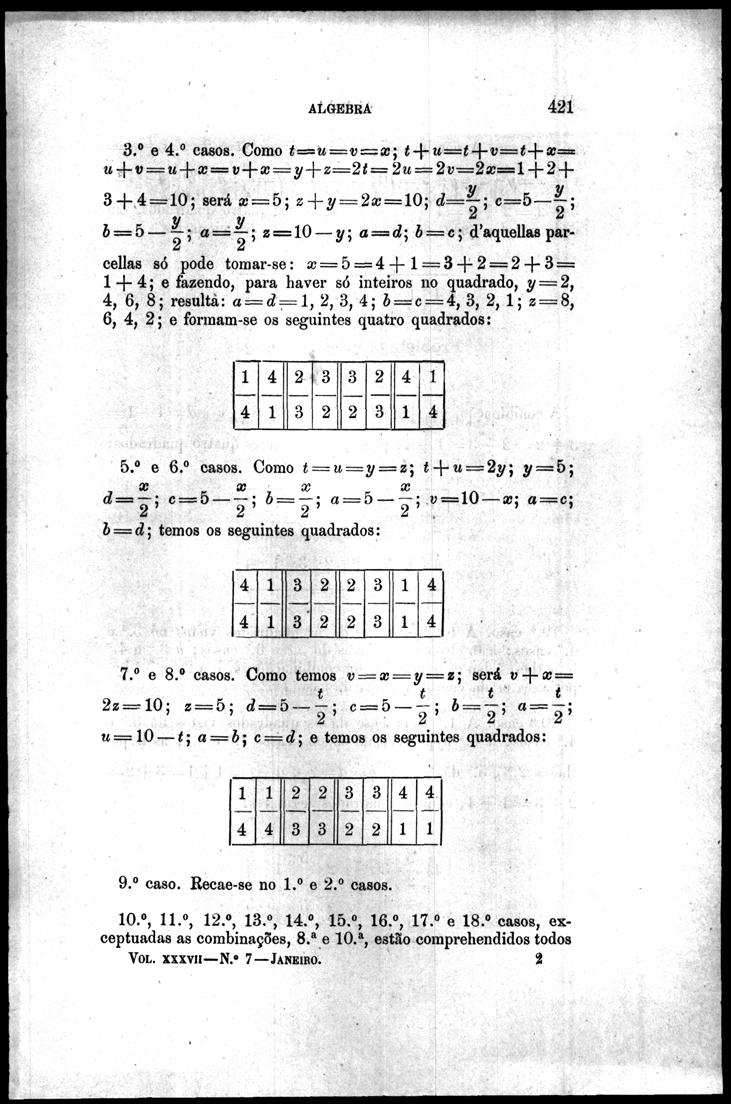 ALGEBRA 421
3.º e 4.º casos. Como t=u=v=x; t+u=t+v=t+x=
u+v=u+x=v+x=y+z=2t=2u=2v=2x=1+2+
3+4=10; será x=5; z+y=2x=10; d=y/2; c=5—y/2;
b=5—y/2; a=y/2; z=10—y; a=d; b=c; d'aquellas par-
cellas só pode tomar-se: x=5=4+1=3+2=2+3=
1+4; e fazendo, para haver só inteiros no quadrado, y=2,
4, 6, 8; resulta: a=d=1, 2, 3, 4; b=c=4, 3, 2, 1; z=8,
6, 4, 2; e formam-se os seguintes quatro quadrados:
1 4 2 3 3 2 4 1
4 1 3 2 2 3 1 4
5.º e 6.º casos. Como t=u=y=z; t+u=2y; y=5;
d=x/2; c=5—x/2; b=x/2; a=5—x/2; v=10—x; a=c;
b=d; temos os seguintes quadrados:
4 1 3 2 2 3 1 4
4 1 3 2 2 3 1 4
7.º e 8.º casos. Como temos v=x=y=z; será v+x=
2z=10; z=5; d=5—t/2; c=5—t/2; b=t/2; a=t/2;
u=10—t; a=b; c=d; e temos os seguintes quadrados:
1 1 2 2 3 3 4 4
4 4 3 3 2 2 1 1
9.º caso. Recae-se no 1.º e 2.º casos.
10.º, 11.º, 12.º, 13.º, 14.º, 15.º, 16.º, 17.º e 18.º casos, ex-
ceptuadas as combinações, 8.ª e 10.ª, estão comprehendidos todos
VOL. XXXVII—N.º 7—JANEIRO. 2